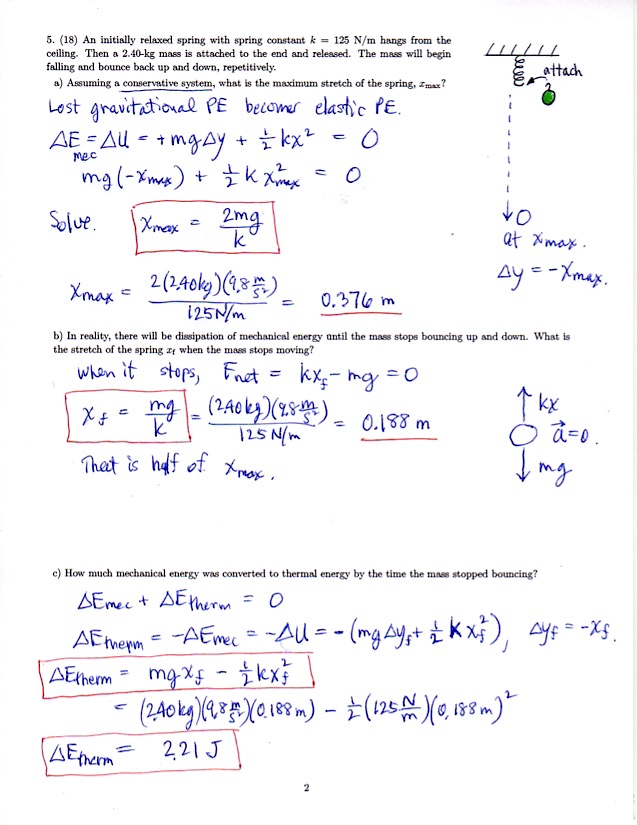 5. (18) An initially relaxed spring with spring constant k = 125 N/m hangs from the
ceiling. Then a 2.40-kg mass is attached to the end and released. The mass will begin
falling and bounce back up and down, repetitively.
a) Assuming a conservative system, what is the maximum stretch of the spring, xmax?
attach
Lost gravitational PE becomes elastic PE.
ΔEmec = ΔU = +mgΔy + ½ kx² = 0
mg(-xmax) + ½ k x²max = 0
Solve. xmax = 2mg/k
at xmax.
Δy = -xmax.
xmax = 2(2.40kg)(9.8 m/s²)/125N/m = 0.376 m
b) In reality, there will be dissipation of mechanical energy until the mass stops bouncing up and down. What is
the stretch of the spring xf when the mass stops moving?
When it stops, Fnet = kxf - mg = 0
xf = mg/k = (2.40kg)(9.8 m/s²)/125 N/m = 0.188 m
kx
a⃗=0.
mg
That is half of xmax.
c) How much mechanical energy was converted to thermal energy by the time the mass stopped bouncing?
ΔEmec + ΔEtherm = 0
ΔEtherm = -ΔEmec = -ΔU = -(mgΔyf + ½ k xf²), Δyf = -xf.
ΔEtherm = mgxf - ½ kxf²
= (2.40kg)(9.8 m/s²)(0.188m) - ½(125 N/m)(0.188m)²
ΔEtherm = 2.21 J
2